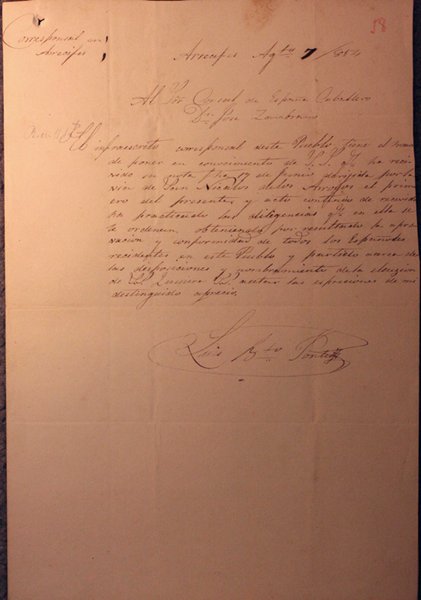 Corresponsal en
Arrecifes
58
Arrecifes Agto 7/854
Al Sor Consul de España Caballero
Dn Jose Zambrano
El infrascrito corresponsal deste Pueblo tiene el honor
de poner en conocimiento de V. S. qe ha reci
vido su nota fha 17 de Junio dirigida por la
via de San Nicolas de los Arroyos el prim
ero del presente, y acto continuo de recivida
ha practicado las diligencias qe en ella se
le ordenan, obteniendo por resultado la apro
vacion y conformidad de todos los Españoles
recidentes en este Pueblo y partido acerca de
las disposiciones y nombramiento de la eleccion
de V.S. Quiera V.S. acetar las espresiones de mi
distinguido aprecio.
Luis Agto